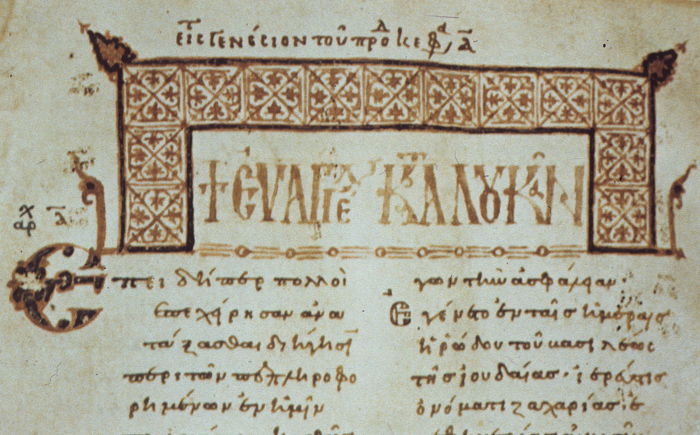 εἰς τ γενέσιον τοῦ προδ κεφα, α
+ ΕΥΑΓΓΕ ΚΑΤΑ ΛΟΥΚΑΝ
αρχ α
Επειδήπερ πολλοὶ
ἐπεχείρησαν ἀνα
τάξασθαι διήγησῖ
περι τῶν πεπληροφο
ρημένων ἐν ἡμῖν
γων τὴν ἀσφάλειαν·
Εγένετο ἐν ταῖς ἡμέραις
ἡρώδου τοῦ βασιλέως
τῆς ἰουδαίας· ἱερεύς τις
ὀνόματι ζαχαρίας· ἐ